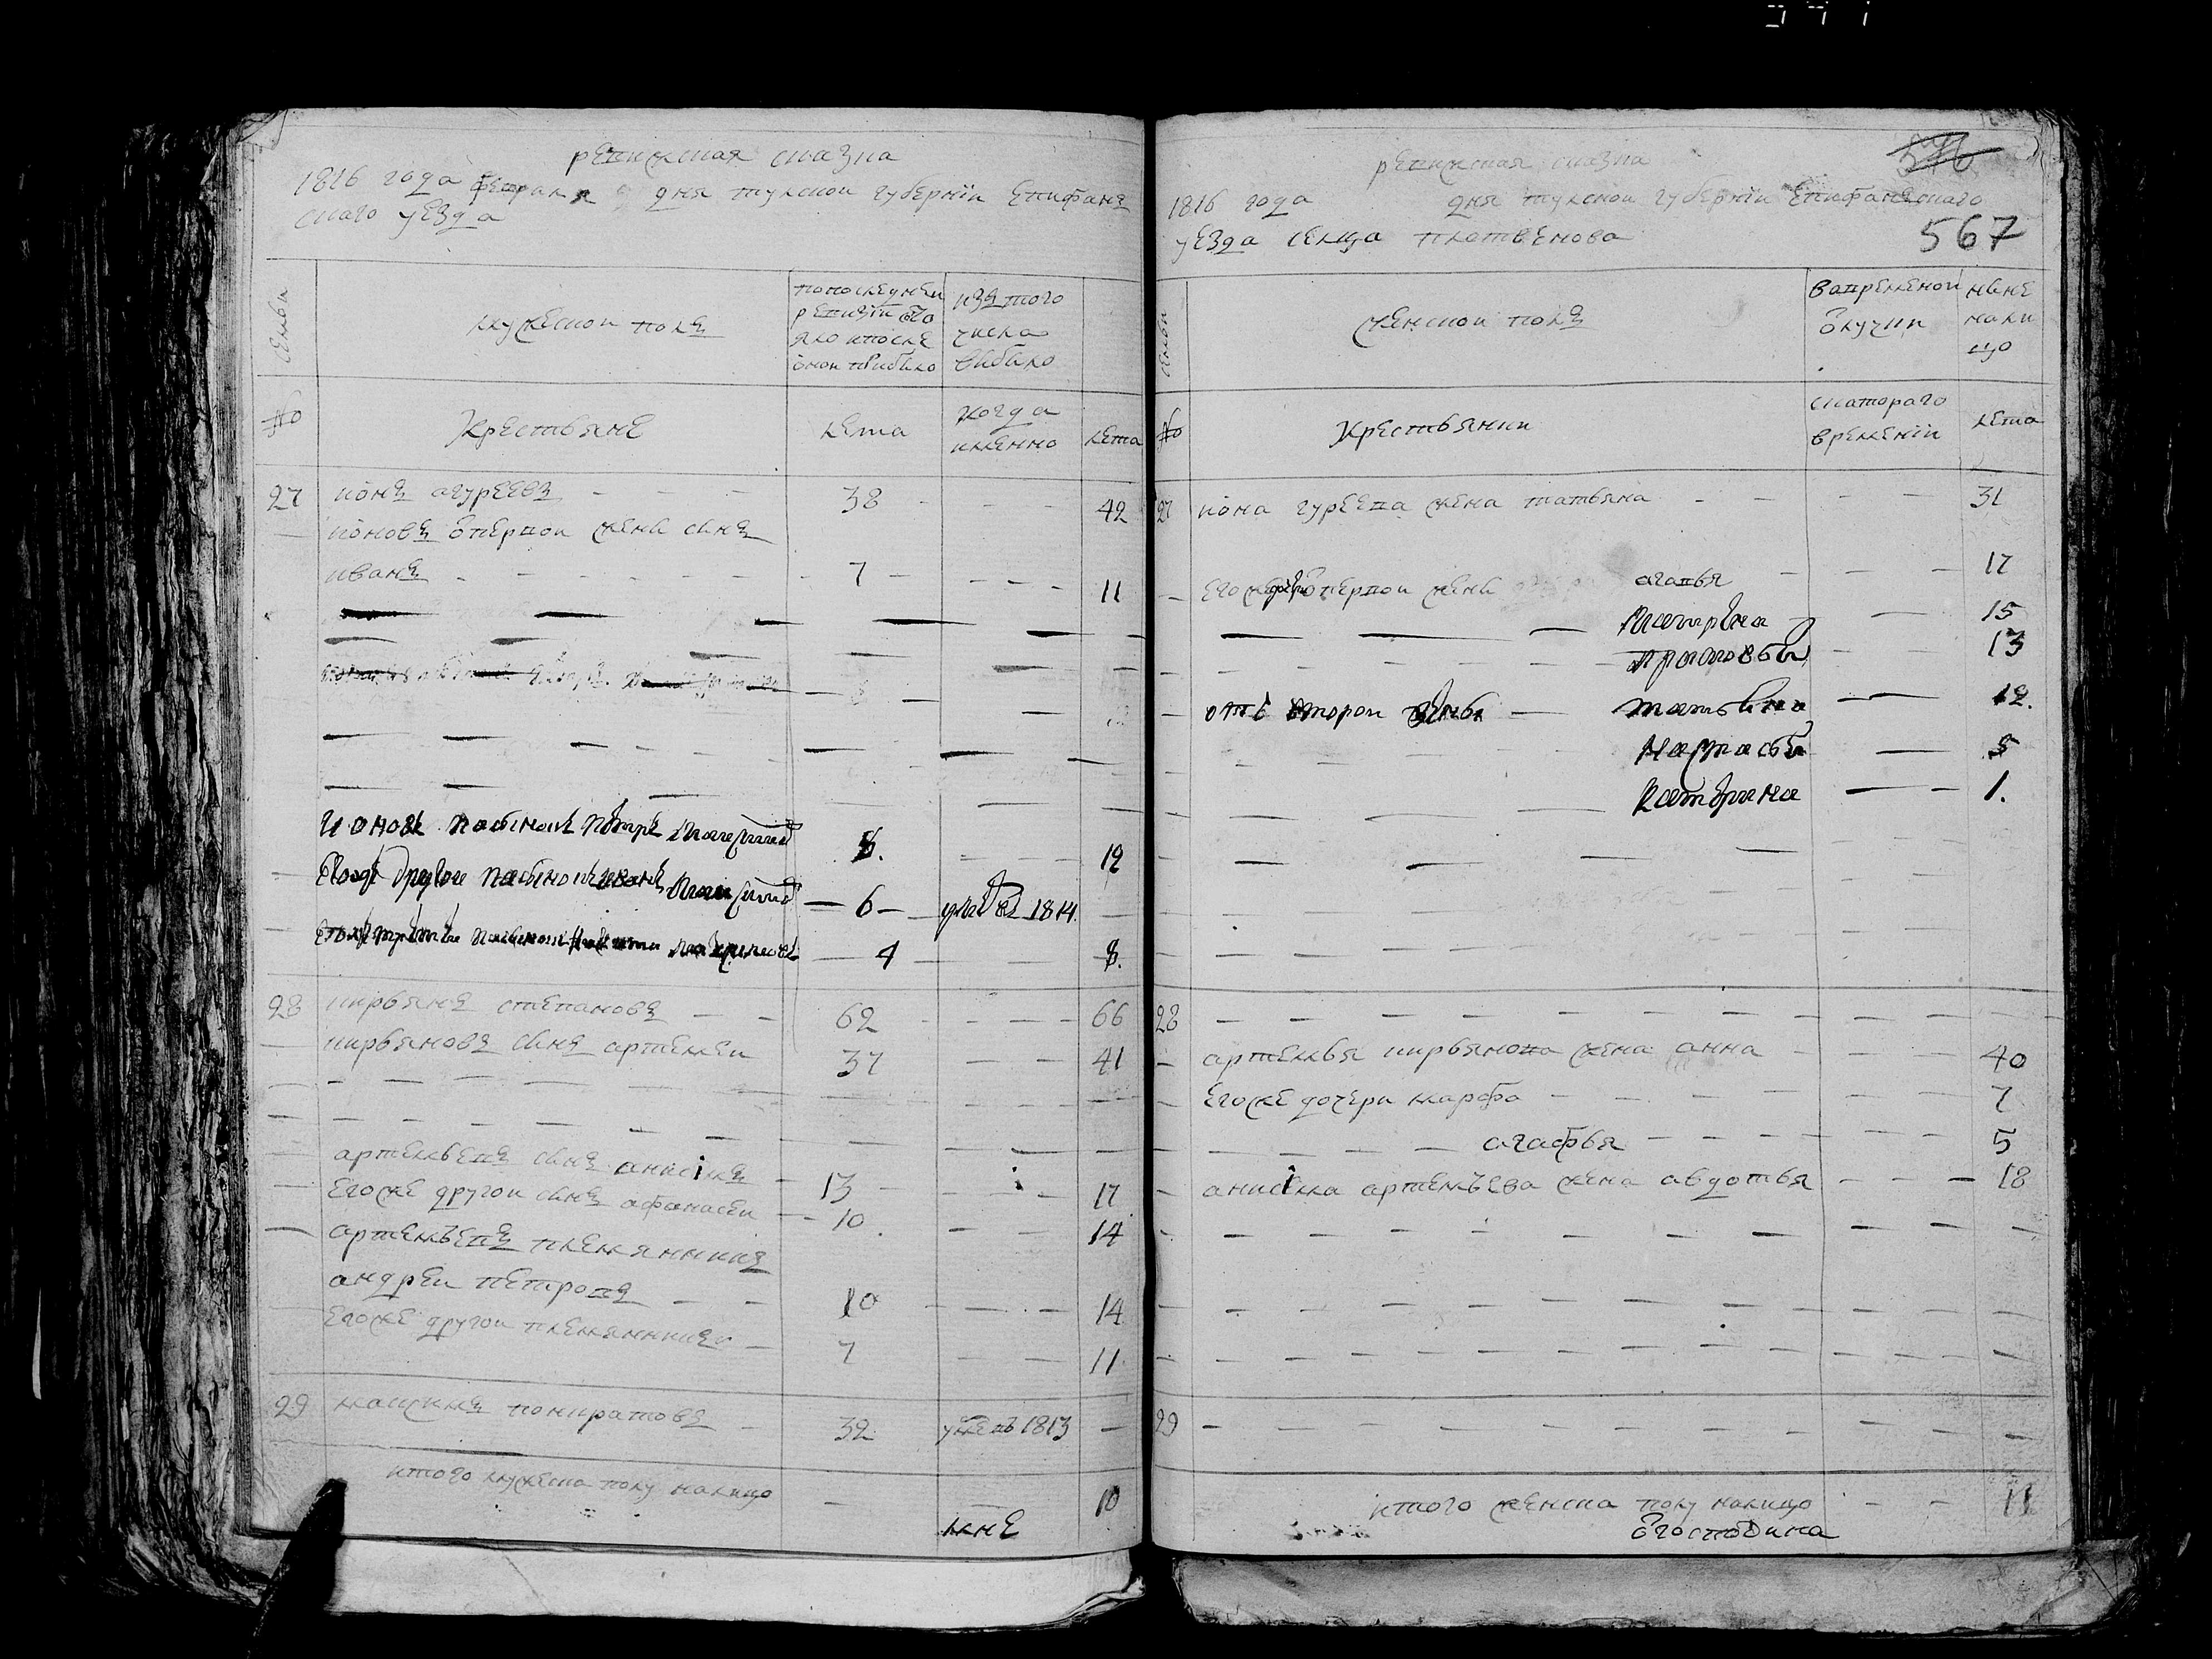 ревижская сказка
1816 года февраля дня тулскои губернїи Епифанъ
скаго уезда
семьи
мужескои полъ
попоследнеи
ревизїи сос
яло ипосле
онои прибыло
изъ того
числа
выбыло
№
Крестьяне
лета
когда
именно
лета
27 ионъ агуреевъ 38 42
ионовъ отпервои жены сынъ
иванъ 7 11
Ионовъ пасынокъ петръ 12
другои пасынокъ иванъ 6 умре въ 1814
третеи пасынокъ 4 8.
28 кирьянъ степановъ 62 66
кирьяновъ сынъ артемеи 37 41
артемьевъ сынъ анисімъ 13 17
Егоже другои сынъ афанасеи 10 14
артемьевъ племянникъ
андреи петровъ 10 14
Егоже другои племянникъ 7 11
29 максимъ панкратовъ 32 умевъ 1813
итого мужеска полу налицо 10
мнЕ
576
567
ревижская сказка
1816 года дня тулскои губернїи Епифанскаго
уезда селца плотвенова
семьи
женскои полъ
вапременои
олучки
ныне
нали
цо
№
Крестьянки
скатораго
временїи
лета
27 иона гуреева жена татьяна 31
Егоже отпервои жены агапья 17
15
прасковья 13
отъ второи жены татьяна 12.
Настасья 5
Катерина 1.
28
артемья кирьянова жена анна 40
Егоже дочери марфа 7
агафья 5
анисима артемъева жена авдотья 18
29
итого женска полу налицо 11
Огосподина